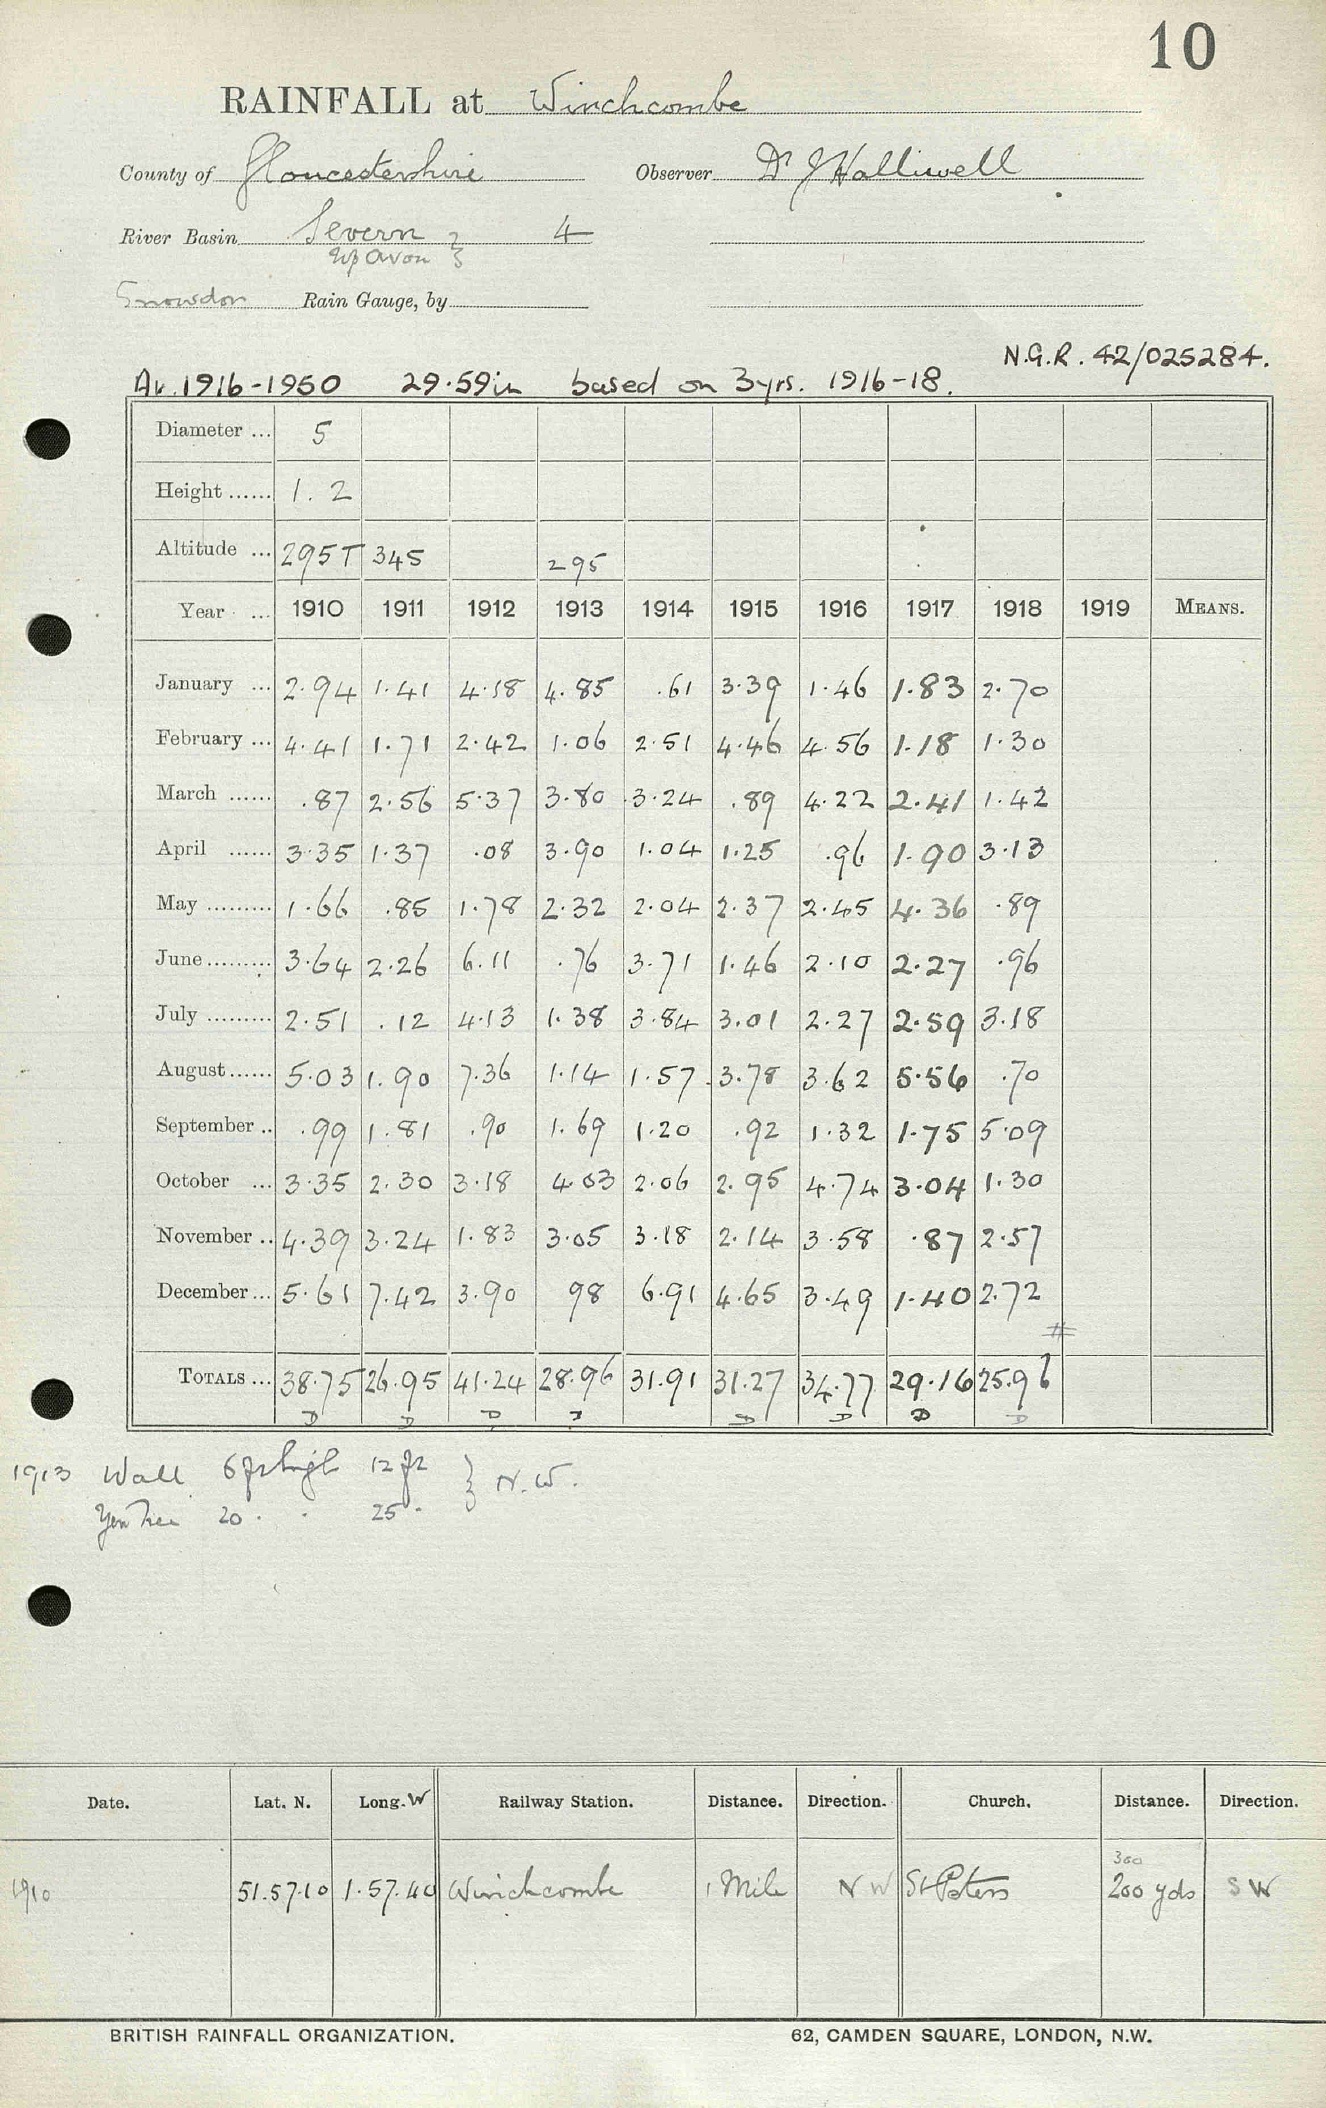 10
RAINFALL at Winchcombe
County of Gloucestershire Observer Dr J Halliwell
River Basin Severn } 4
Up Avon
Snowdon Rain Gauge, by
N.G.R. 42/025284.
Av. 1916-1950 29.59in based on 3yrs. 1916-18.
Diameter ... 5
Height ...... 1. 2
Altitude ... 295T 345 295
Year ... 1910 1911 1912 1913 1914 1915 1916 1917 1918 1919 MEANS.
January ... 2.94 1.41 4.18 4.85 .61 3.39 1.46 1.83 2.70
February ... 4.41 1.71 2.42 1.06 2.51 4.46 4.56 1.18 1.30
March ...... .87 2.56 5.37 3.80 3.24 .89 4.22 2.41 1.42
April ...... 3.35 1.37 .08 3.90 1.04 1.25 .96 1.90 3.13
May ......... 1.66 .85 1.78 2.32 2.04 2.37 2.45 4.36 .89
June ......... 3.64 2.26 6.11 .76 3.71 1.46 2.10 2.27 .96
July ......... 2.51 .12 4.13 1.38 3.84 3.01 2.27 2.59 3.18
August ...... 5.03 1.90 7.36 1.14 1.57 3.78 3.62 5.56 .70
September .. .99 1.81 .90 1.69 1.20 .92 1.32 1.75 5.09
October ... 3.35 2.30 3.18 4.03 2.06 2.95 4.74 3.04 1.30
November .. 4.39 3.24 1.83 3.05 3.18 2.14 3.58 .87 2.57
December ... 5.61 7.42 3.90 98 6.91 4.65 3.49 1.40 2.72
TOTALS ... 38.75 26.95 41.24 28.96 31.91 31.27 34.77 29.16 25.96
D D D D D D D
1913 Wall 6 ft high 12 ft } N.W.
Yew Tree 20 . . 25 .
Date. Lat. N. Long. W Railway Station. Distance. Direction. Church. Distance. Direction.
300
1910 51.57.10 1.57.40 Winchcombe 1 Mile N W St Peters 200 yds S W
BRITISH RAINFALL ORGANIZATION. 62, CAMDEN SQUARE, LONDON, N.W.